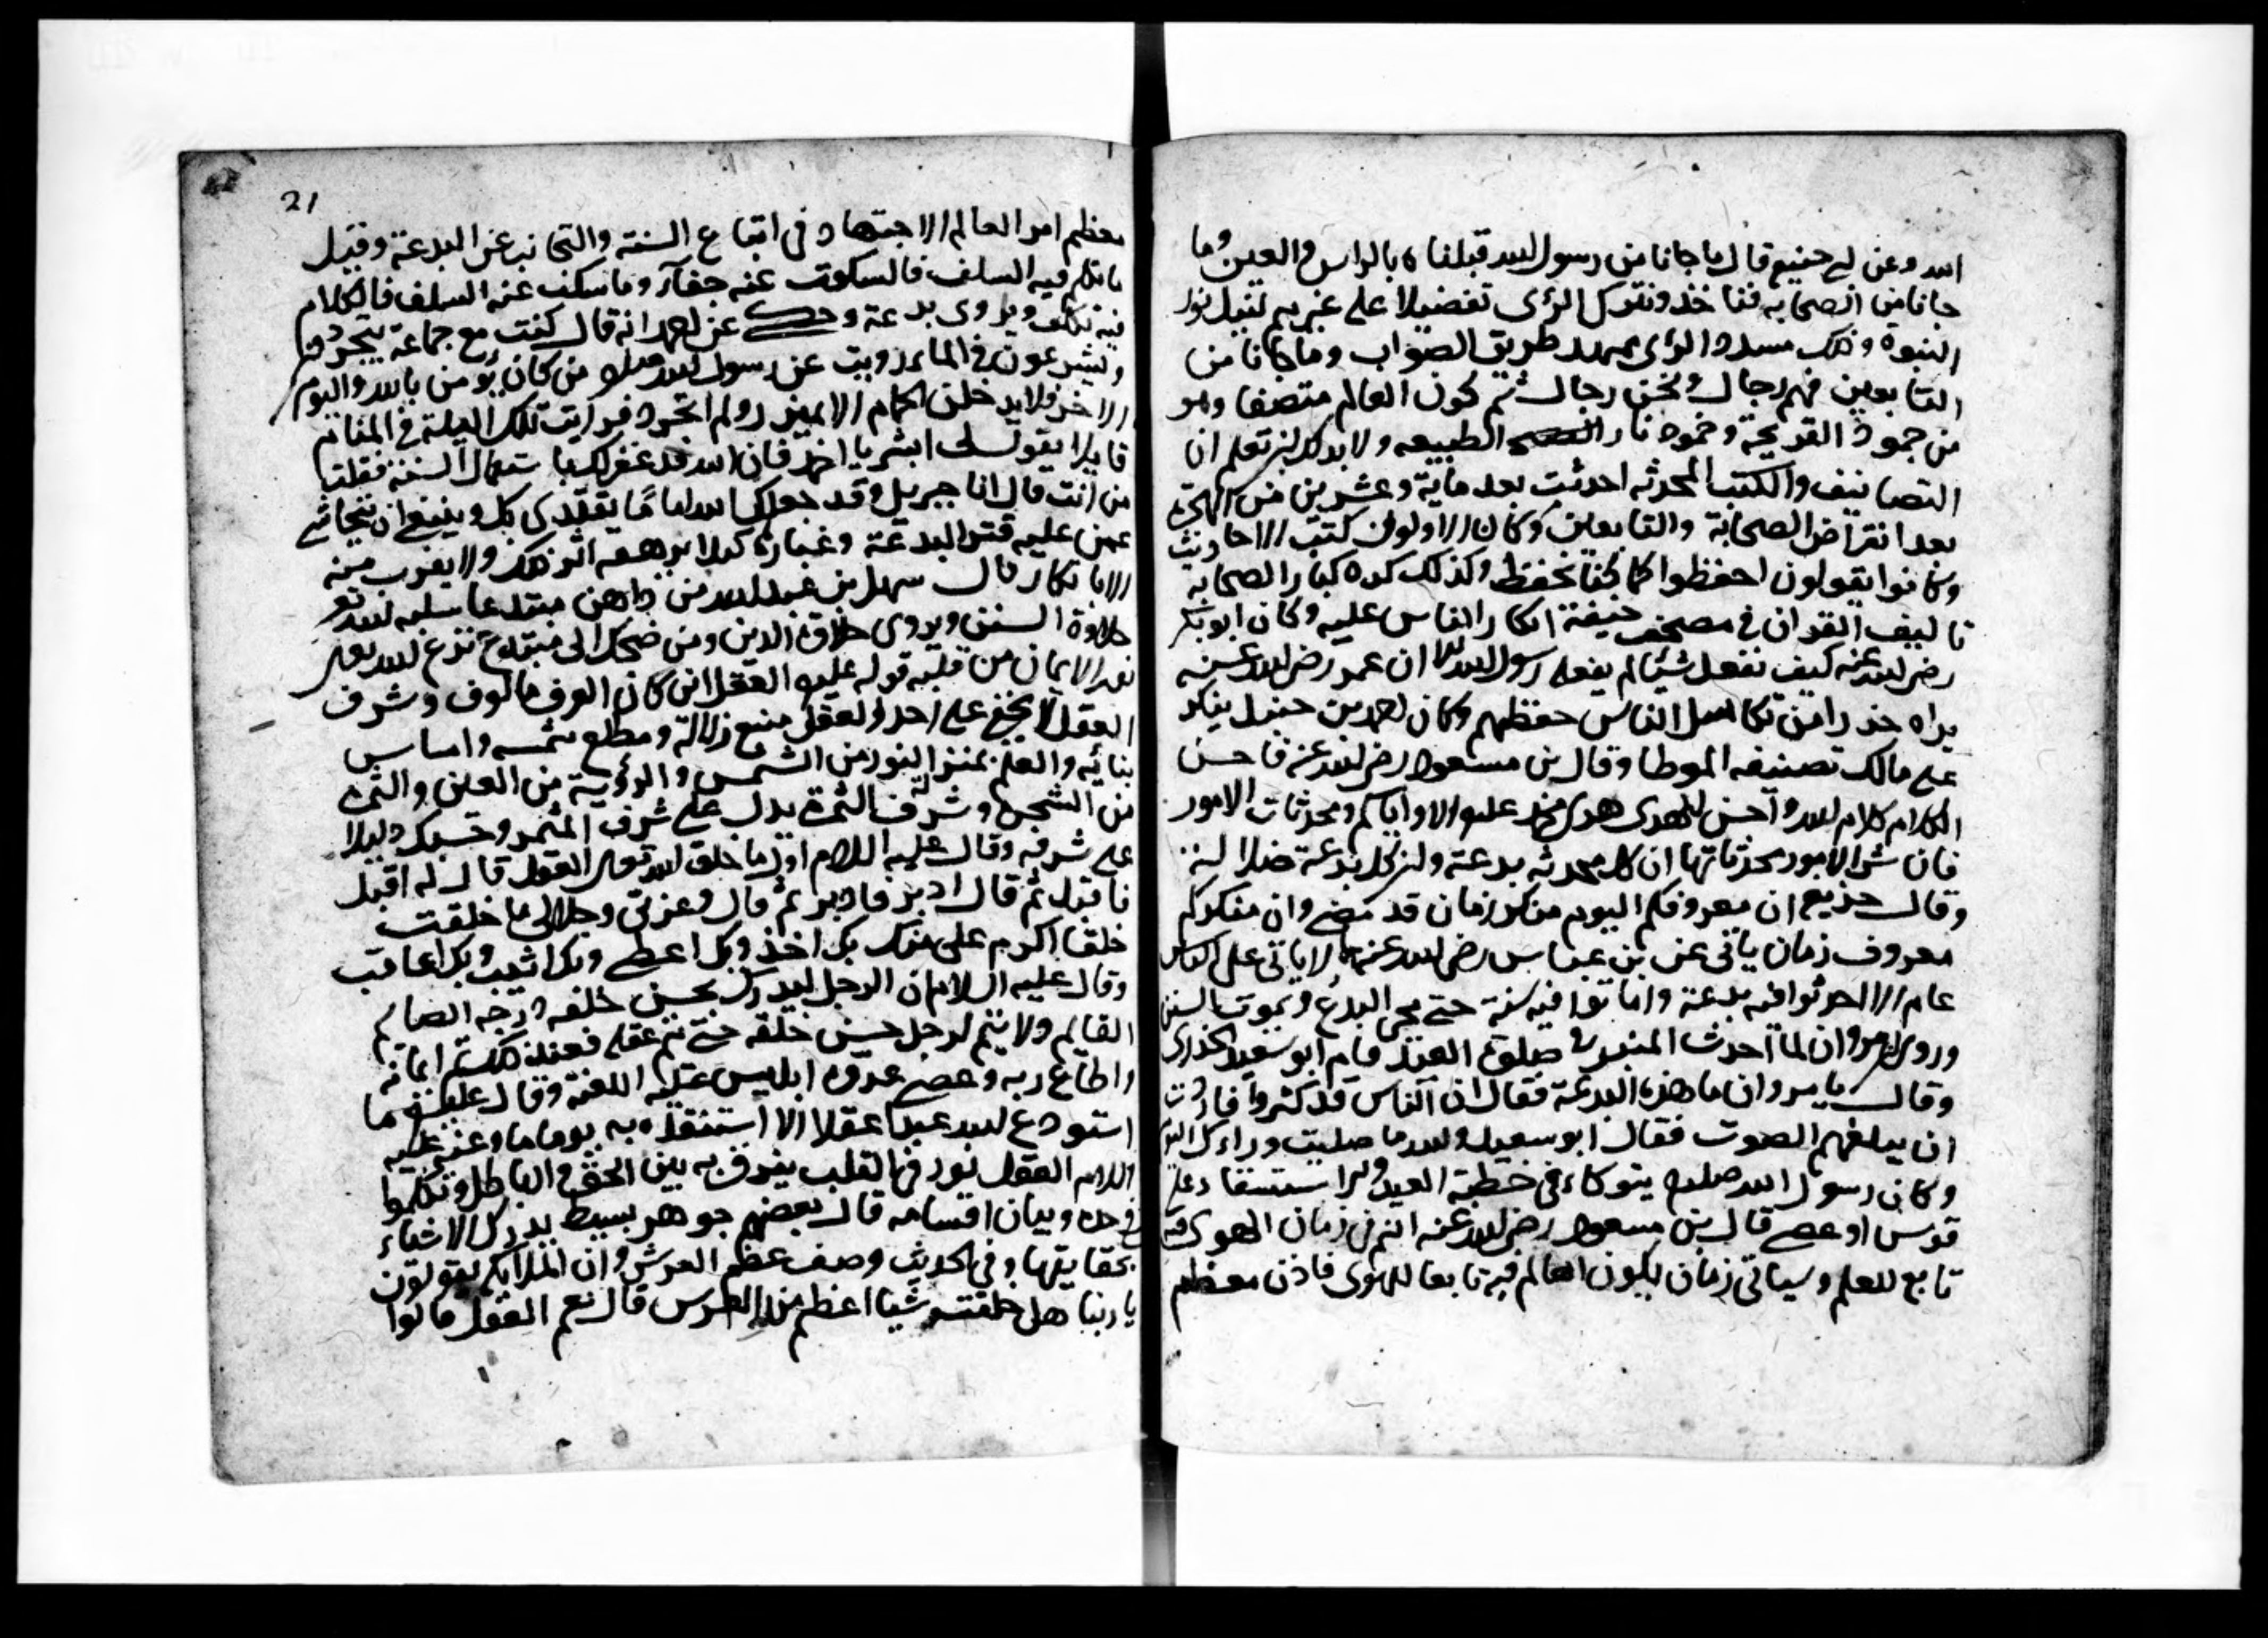 الله وعن ابي حنيفة قال ما جانا من رسول الله قبلناه بالراس والعين وما
جانا من الصحابه فناخذ ونترك الرؤى تفضيلا على غيرهم لنيل نور
النبوة وذلك مسدد الرؤى ممهد طريق الصواب وما جانا من
التابعين فهم رجال ونحن رجال ثم كون العالم متصفا وهو
من جمود القريحة وخمود نار الطبيعه ولا بد لك ان تعلم ان
التصانيف والكتب المحدثه احدثت بعد ماية وعشرين من الهجرة
بعد انقراض الصحابة والتابعين وكان الاولون كتب الاحاديث
وكانوا يقولون احفظوا كما كنا نحفظ وكذلك كره كبار الصحابه
تاليف القران في مصحف خيفة انكار الناس عليه وكان ابوبكر
رضى الله عنه كيف نفعل شيئا لم يفعله رسول الله الا ان عمر رضى الله عنه
يراه حذرا من تكاسل الناس حفظهم وكان احمد بن حنبل ينكر
على مالك تصنيفه الموطا وقال بن مسعود رضى الله عنه فاحسن
الكلام كلام الله واحسن الهدى هدى محمد عليه الا واياكم ومحدثات الامور
فان شر الامور محدثاتها ان كل محدثه بدعة وان كل بدعة ضلالة
وقال حذيفة ان معروفكم اليوم منكر زمان قد مضى وان منكركم
معروف زمان ياتى عن بن عباس رضى الله عنهما لا ياتى على الناس
عام الا احدثوا فيه بدعة واماتوا فيه سنة حتى يحى البدع ويموت السنن
وروى ان مروان لما احدث المنبر فى صلوة العيد قام ابو سعيد الخدرى
وقال يا مروان ما هذه البدعة فقال ان الناس قد كثروا فاردت
ان يبلغهم الصوت فقال ابو سعيد والله ما صليت وراءك اليوم
وكان رسول الله صلعم يتوكاء فى خطبة العيد والاستسقا على
قوس او عصى قال بن مسعود رضى الله عنه انتم فى زمان الهوى فيه
تابع للعلم وسياتى زمان يكون العالم فيه تابعا للهوى فاذن معظم
21
معظم امر العالم الاجتهاد فى اتباع السنة والتجانب عن البدعة وقيل
ما تكلم فيه السلف فالسكوت عنه جفآء وما سكت عنه السلف فالكلام
فيه تكلف ويروى بدعة وحكى عن احمد انه قال كنت مع جماعة يتجردوا
ويشرعون فى الماء رويت عن رسول الله صلعم من كان يؤمن بالله واليوم
الاخر فلا يدخلن الحمام الا بميزر ولم اتجرد فرايت تلك الليلة فى المنام
قايلا يقول لى ابشر يا احمد فان الله قد غفر لك باستعمال السنة فقلت
من انت قال انا جبريل وقد جعلك الله اماما يقتدى بك وينبغى ان يتحاشى
عمن عليه قتر البدعة وغباره كيلا يرهقه اثر ذلك ولا يقرب منه
الا بانكار قال سهل بن عبد الله من داهن مبتدعا سلبه الله تع
حلاوة السنن ويروى حلاوة الدين ومن ضحك الى مبتدع نزع الله تعالى
نور الايمان من قلبه قوله عليه العقل ان كان العرف مالوف وشرف
العقل لا يخفى على احد والعقل منبع زلاله ومطلع شمسه واساس
بنائه والعلم بمنزلة النور من الشمس والرؤية من العين والثمرة
من الشجرة وشرف الثمرة يدل على شرف المثمر وحسبك دليلا
على شرفه وقال عليه السلام اول ما خلق الله تعالى العقل قال له اقبل
فاقبل ثم قال ادبر فادبر ثم قال وعزتى وجلالى ما خلقت
خلقا اكرم على منك بك اخذ وبك اعطى وبك اثيب وبك اعاقب
وقال عليه السلام ان الرجل ليدرك بحسن خلقه درجه الصائم
القايم ولا يتم لرجل حسن خلقه حتى تم عقله فعند ذلك تم ايمانه
واطاع ربه وعصى عدوه ابليس عليه اللعنة وقال عليه ما
استودع الله عبدا عقلا الا استنقذه به يوما ما وعنه عليه
السلام العقل نور فى القلب يفرق به بين الحق والباطل وتكلموا
فى حده وبيان اقسامه قال بعضهم جوهر بسيط يدرك الاشياء
بحقايقها وفى الحديث وصف عظم العرش وان الملايكة يقولون
يا ربنا هل خلقت شيا اعظم من العرش قال نعم العقل قالوا